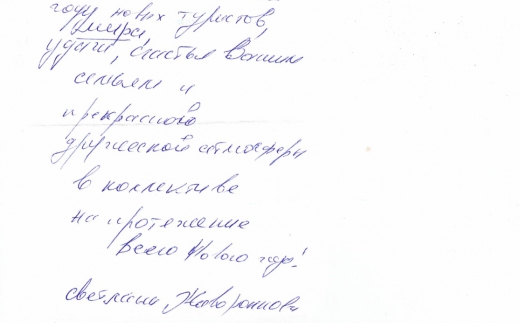 году новых туристов,
мира,
удачи, счастья Вашим
семьям и
прекрасной
дружеской атмосферы
в коллективе
на протяжение
всего Нового года!
Светлана Жаворонкова